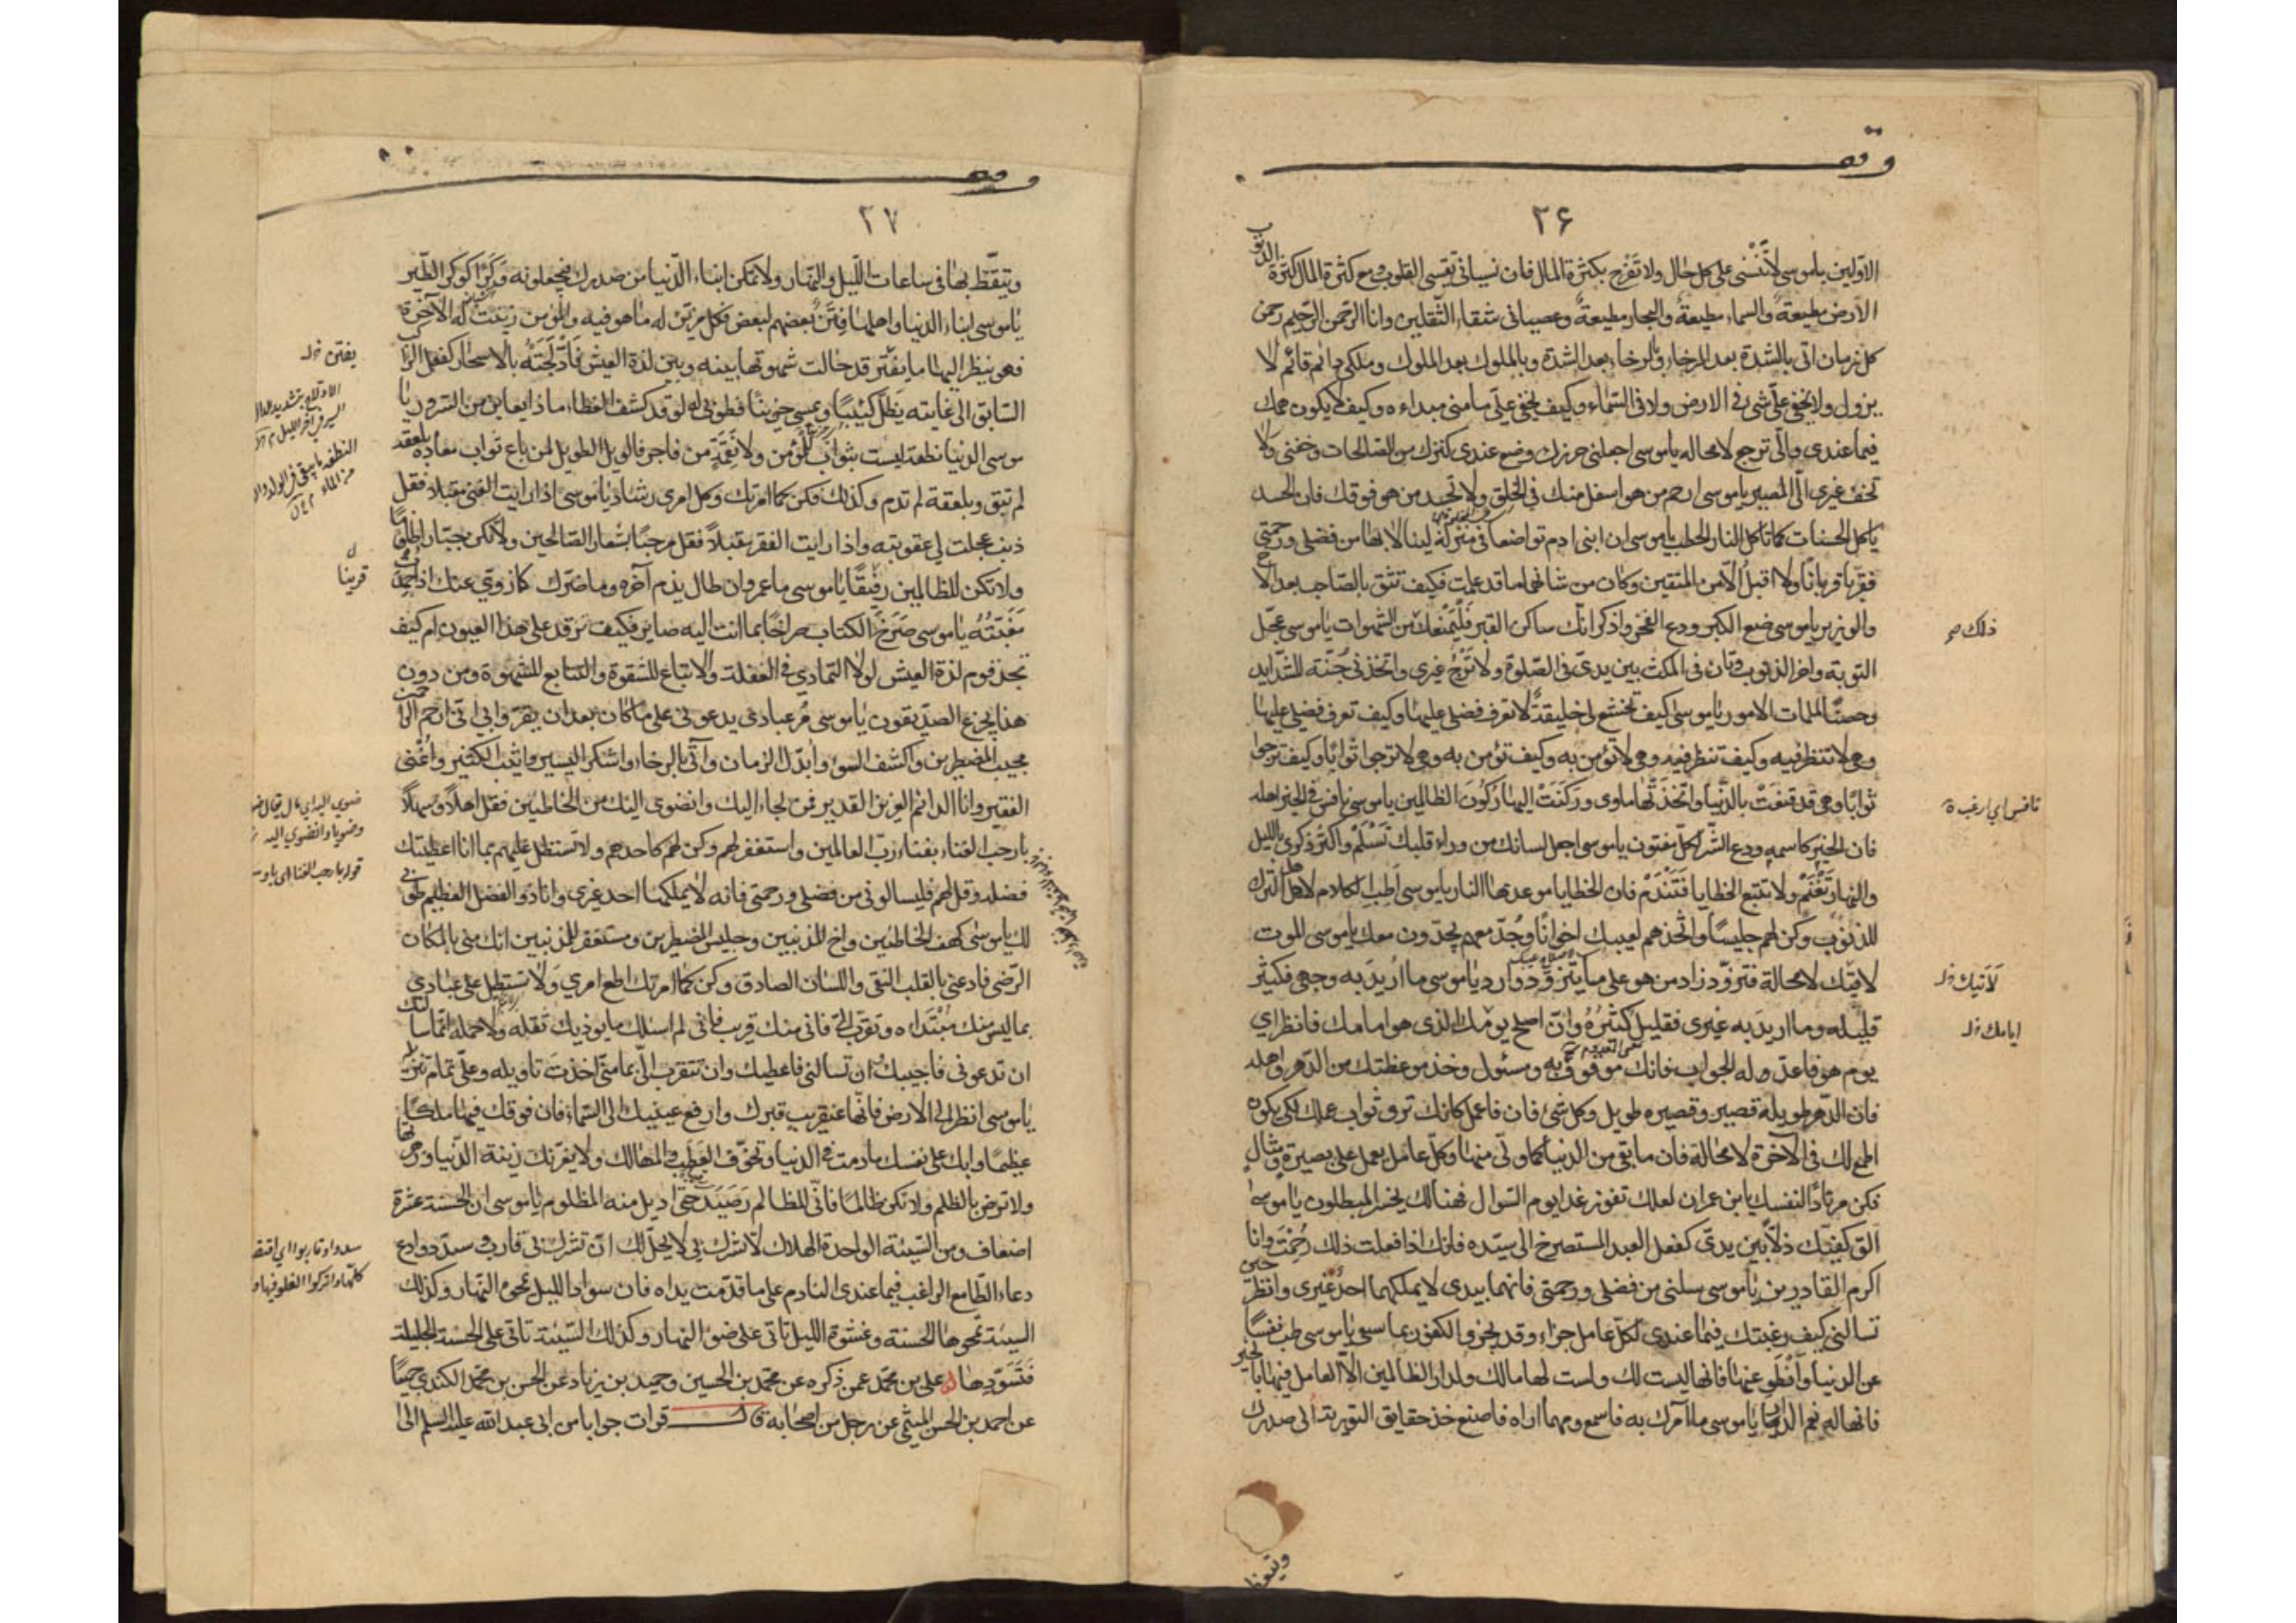 وقف
٢۶
الاولين ياموسى لاتَنْسَنى على كل حال ولا تَفْرح بكثرة المال فان نسيانى يقسى القلوب ومع كثرة المال كثرة الذنوب
الارض مطيعةٌ والسماء مطيعةٌ والبحار مطيعةٌ وعصيانى شقاء الثقلين وانا الرحمن الرحيم رحمن
كل زمان اتى بالشدة بعد الرخاء وبالرخاء بعد الشدة وبالملوك بعد الملوك وملكى دائم قائم لا
يزول ولا يخفى علىّ شئ فى الارض ولا فى السّماء وكيف يخفى علىّ ما منى مبداءه وكيف لا يكون همك
فيما عندى والىّ ترجع لا محاله ياموسى اجعلنى حرزك وضع عندى كنزك من الصالحات وخفنى ولا
تخف غيرى الىّ المصير ياموسى ارحم من هو اسفل منك فى الخلق ولا تحسد من هو فوقك فان الحسد
ياكل الحسنات كما تاكل النار الحطب ياموسى ان ابنى ادم تواضعا فى منزلة لينالا بها من فضلى ورحمتى
فقرّبا قربانًا ولا اقبلُ الّا من المتقين وكان من شانهما ما قد علمت فكيف تثق بالصّاحب بعد الاخ
والوزير ياموسى ضع الكبر ودع الفخر واذكر انّك ساكن القبر فَلْيَمْنَعكَ من الشهوات ياموسى عجّل
ذلك صح
التوبة واخر الذنوب وتان فى المكث بين يدىّ فى الصّلوة ولا تَرْجُ غيرى واتخذنى جُنّة للشدايد
وحصنًا لملمات الامور ياموسى كيف تخشع لى خليقةٌ لا تعرف فضلى عليها وكيف تعرف فضلى عليها
وهى لا تنظر فيه وكيف تنظر فيه وهى لا تؤمن به وكيف تؤمن به وهى لا ترجوا ثوابًا وكيف ترجوا
ثوابًا وهى قد قنعَتْ بالدّنيا واتّخذَتْها ماوى وركنَتْ اليها ركُونَ الظالمين ياموسى نافس فى الخير اهله
نافس اى ارغب ة
فان الخير كاسمه ودع الشّر لكلّ مفتون ياموسى اجعل لسانك من وراء قلبك تَسْلَم واكثر ذكرى بالليل
والنهار تَغْنَم ولا تتبع الخطايا فَتَنْدَمَ فان الخطايا موعدها النار ياموسى اطب الكلام لاهل الترك
للذنوب وكن لهم جليسًا واتّخذهم لغيبك اخوانًا وجُدّ معهم يجدّون معك ياموسى الموت
لاقيك لا محالة فتزوّد زاد من هو على ما يتزوّد وارد ياموسى ما اُريدَ به وجهى فكثير
لاتيك خ‌ل
قليله وما اريدَ به غيرى فقليل كثيرُهُ وانّ اصلح يومك الذى هو امامك فانظر اى
ايامك خ‌ل
يوم هو فاعدّ وله الجواب فانك موقوف به ومسئول وخذ موعظتك من الدّهر واهله
فان الدّهر طويله قصير وقصيره طويل وكل شئ فان فاعمل كانك ترى ثواب عملك لكى يكون
اطمع لك فى الاخرة لا محالة فان ما بقى من الدنيا كما ولّى منها وكلّ عامل يعمل على بصيرةٍ ومثالٍ
فكن مرتادًا لنفسك يابن عمران لعلك تفوز غدا يوم السّوال فهنالك يخسر المبطلون ياموسى
الق كفيّك ذلّا بين يدىّ كفعل العبد المستصرخ الى سيّده فانك اذا فعلت ذلك رُحِمْتَ وانا
اكرم القادرين ياموسى سلنى من فضلى ورحمتى فانهما بيدى لا يملكهما احدٌ غيرى وانظر حين
تسالنى كيف رغبتك فيما عندى لكلّ عامل جزاء وقد يجزى الكفور بما سعى ياموسى طب نفسًا
عن الدنيا وانْطَوِ عنها فانها ليست لك ولست لها مالك ولدار الظالمين الّا العامل فيها بالخير
فانها له نعم الدار ياموسى ما آمرك به فاسمع ومهما اراه فاصنع خذ حقايق التورية الى صدرك
وتيقظ
وقف
٢٧
وتيقّظ بها فى ساعات اللّيل والنّهار ولا تمكن ابناء الدّنيا من صدرك فيجعلونه وَكْرًا كوكر الطّير
ياموسى ابناء الدنيا واهلها فِتَنٌ بعضهم لبعض فكل مزيّن له ما هو فيه والمؤمن زينت له الآخرة
فهو ينظر اليها ما يفْتر قد حالت شهوتها بينه وبين لذة العيش فَادّلَجَتْهُ بالاسحار كفعل الراكب
يفتن خ‌ل
السّابق الى غايته يظلّ كئيبًا ويمسى حزينًا فطوبى له لو قد كشف الغطاء ماذا يعاين من السّرور يا
الادلاج بتشديد الدال
السير فى آخر الليل
موسى الدنيا نطفة ليست بثواب للمؤمن ولا نقمَة من فاجر فالويل الطويل لمن باع ثواب معاده بلعقة
النطفة ما يبقى فى الدلو
من الماء
لم تبق وبلعقة لم تدم وكذلك فكن كما امرتك وكل امرى رشاد ياموسى اذا رايت الغنى مقبلا فقل
ذنب عجلت لى عقوبته واذا رايت الفقر مقبلاً فقل مرحبًا بشعار الصّالحين ولا تكن جبّارا ظلومًا
ولا تكن للظالمين رفيقًا ياموسى ما عمر وان طال يذم آخره وما ضرّك ما زوى عنك اذا حُمِدَتْ
قرينا
مَغَبّتُهُ ياموسى صَرَخَ الكتاب صراخًا بما انت اليه صاير فكيف ترقد على هذا العيون ام كيف
تجد قوم لذة العيش لولا التمادى فى الغفلة والاتباع للشقوة والتتابع للشهوة ومن دون
هذا يجزع الصدّيقون ياموسى مُر عبادى يدعونى على ما كان بعد ان يقرّوا بى انى ارحم الراحمين
مجيب المضطرين واكشف السّوء واُبدّل الزمان وآتى بالرخاء واشكر اليسير واثيب الكثير واُغْنى
الفقير وانا الدائم العزيز القدير فمن لجاء اليك وانضوى اليك من الخاطئين فقل اهلاً وسهلاً
ضوى اليه اى مال
وضويا وانضوى اليه
يا رحب الفناء بفناء ربّ العالمين واستغفر لهم وكن لهم كاحدهم ولا تستطل عليهم بما انا اعطيتك
قوله يا رحب الفناء
فضله وقل لهم فليسالونى من فضلى ورحمتى فانه لا يملكهما احد غيرى وانا ذو الفضل العظيم طوبى
لك ياموسى كهف الخاطئين واخ المذنبين وجليس المضطرين ومستغفر للمذنبين انك منى بالمكان
الرّضى فادعنى بالقلب النقى واللّسان الصادق وكن كما امرتك اطع امرى ولا تستطل على عبادى
بما ليس منك مُبْتَداه وتقرّب الىّ فانى منك قريب فانى لم اسئلك ما يوذيك ثقله ولا حمله انما سالتك
ان تدعونى فاجيبك ان تسالنى فاعطيك وان تتقرب الىّ بما منّى اخذتَ تاويله وعلىّ تمام تنزيله
ياموسى انظر الى الارض فانّها عنقريب قبرك وارفع عينيك الى السّماء فان فوقك فيها ملكًا
عظيمًا وابك على نفسك ما دمت فى الدنيا وتخوّف العَطَب والمهالك ولا يغرّنك زينة الدّنيا وزهرتها
ولا ترض بالظلم ولا تكن ظالمًا فانّى للظالم رَصَيدٌ حتى اُديل منه المظلوم ياموسى ان الحسنة عشرة
اضعاف ومن السّيئة الواحدة الهلاك لا تشرك بى لا يحلّ لك انْ تشرك بى قارب وسدّد وادع
سددوا وقاربوا اى اقتصدوا
دعاء الطّامع الراغب فيما عندى النادم على ما قدّمت يداه فان سواد الليل يمحوه النّهار وكذلك
كلها واتركوا الغلو فيها
السيئة تمحوها الحسنة وعشوة الليل تاتى على ضوء النهار وكذلك السّيّئة تاتى على الحسنة الجليلة
فَتَسَوّدها علىّ بن محمّد عمن ذكره عن محمّد بن الحسين وحميد بن زياد عن الحسن بن محمّد الكندى جميعًا
عن احمد بن الحسن الميثمى عن رجل من اصحابه قال قرات جوابا من ابى عبد الله عليه السلم الى